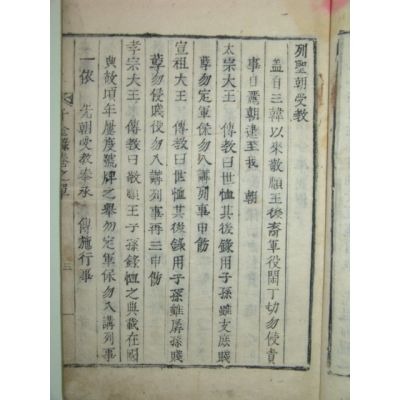 列聖朝受教
蓋自三韓以來敬順王後裔軍役閑丁切勿使責
事自麗朝逮至我 朝
太宗大王 傳教曰世恤其後錄用子孫雖支庶賤
孽勿定軍保勿入講列事申飭
宣祖大王 傳教曰世恤其後錄用子孫雖孱孫賤
孽勿侵賤役勿入講列事再三申飭
孝宗大王 傳教曰敬順王子孫錄恤之典載在國
典故頃年屢度號牌之舉勿定軍保勿入講列事
一依 先朝受教奉承 傳施行事
卷之單